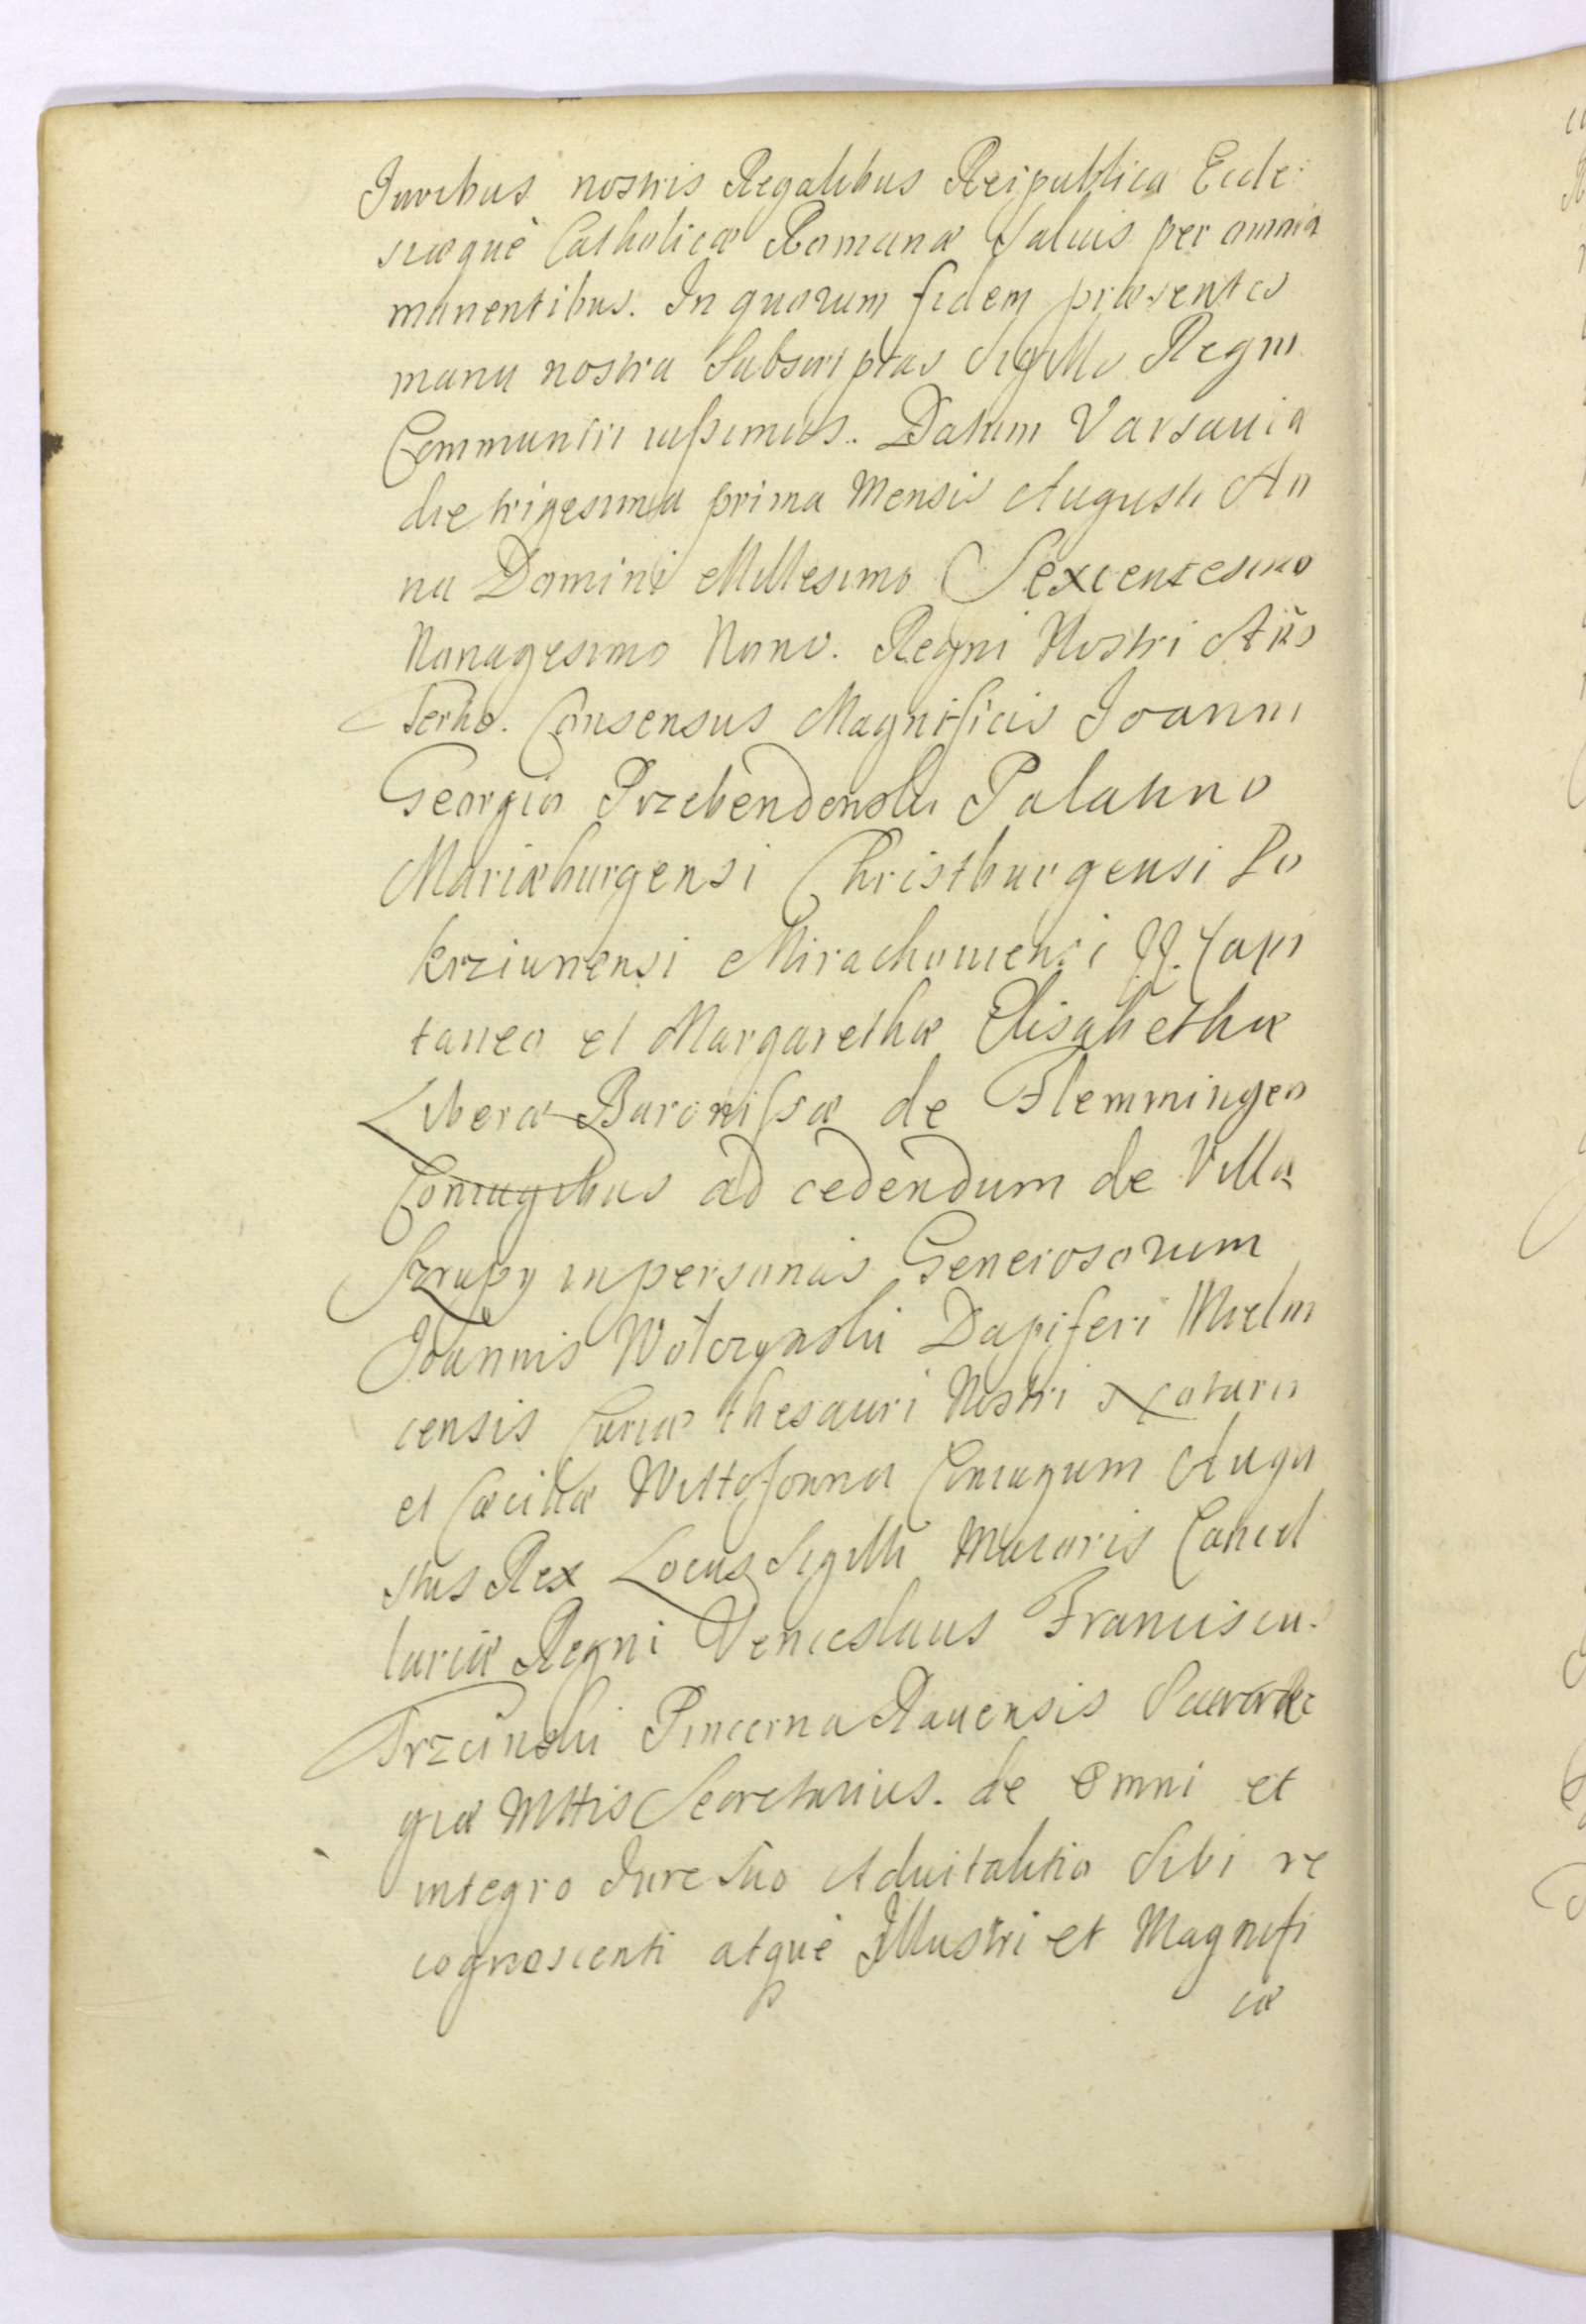 Juribus nostris Regalibus Reipublicæ Eccle:
siæquè Catholicæ Romanæ Saluis per omnia
manentibus. In quorum fidem præsentes
manu nostra Subscriptas Sigillo Regni
Communiri iussimus. Datum Varsauiæ
die trigesima prima Mensis Augusti An
no Domini Millesimo Sexcentesimo
Nonagesimo Nono. Regni Nostri Añs
Tertio. Consensus Magnificis Joanni
Georgio Przebendonski Palatino
Mariæburgensi Christburgensi Po
krziunensi Mirachouiensi &&. Capi
taneo et Margarethæ Elisabethæ
Liberæ Baronissæ de Flemmingen
Coniugibus ad cedendum de Villa
Szrupy in personas Generosorum
Joannis Wolczynski Dapiferi Mielni
censis Curiæ thesauri Nostri Notarii
et Cæciliæ Wittofowna Coniugum Augu
stus Rex Locus Sigilli Maioris Cancel
lariæ Regni Venceslaus Franciscus
Trzcinski Pincerna Rauensis Sacræ Re
giæ Mttis Secretarius. de Omni et
integro Jure Suo Aduitalitio Sibi re
cognoscenti atquè Illustri et Magnifi
cæ